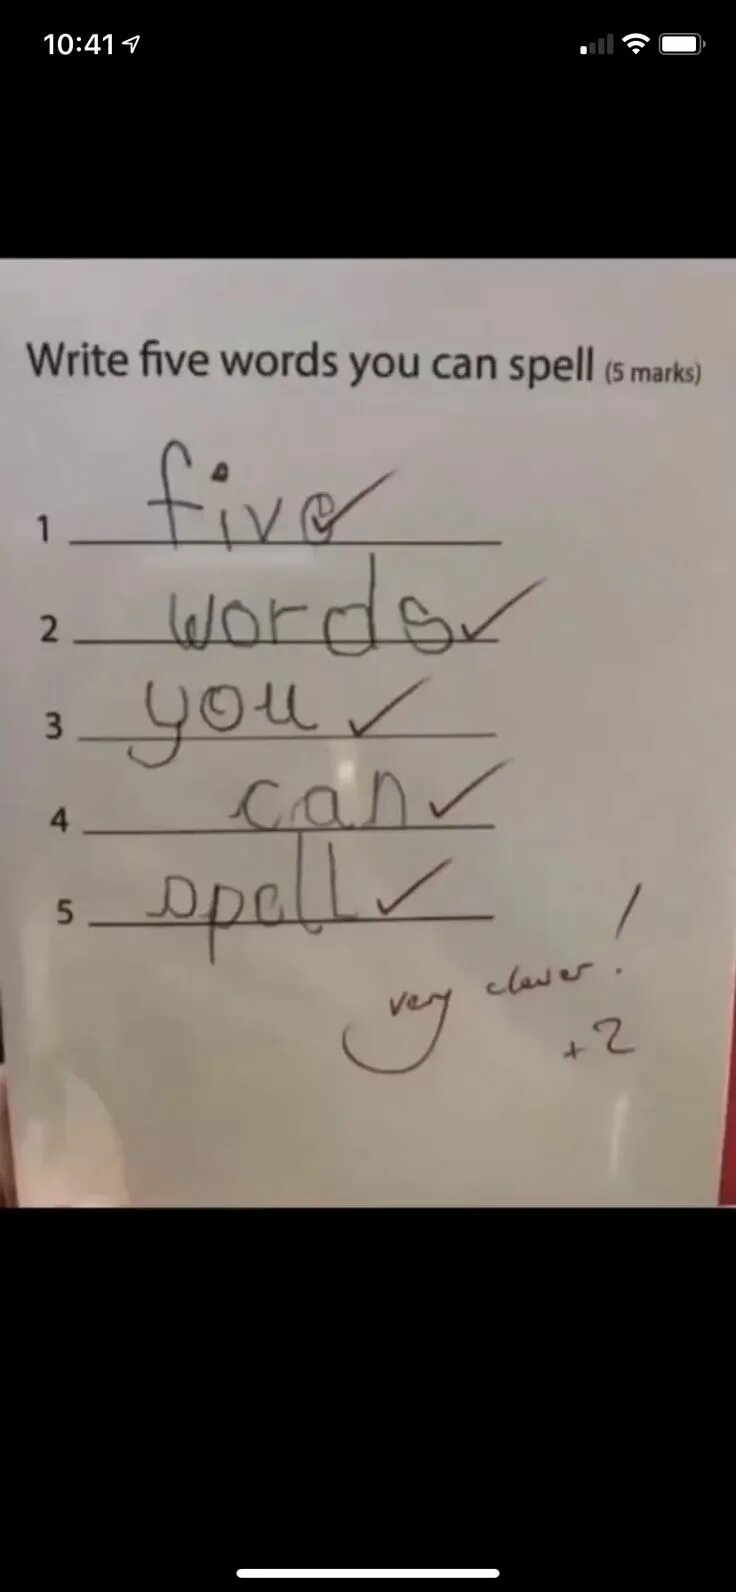 10:41
Write five words you can spell (5 marks)
1 five
2 words
3 you
4 can
5 spell
very clever!
+2